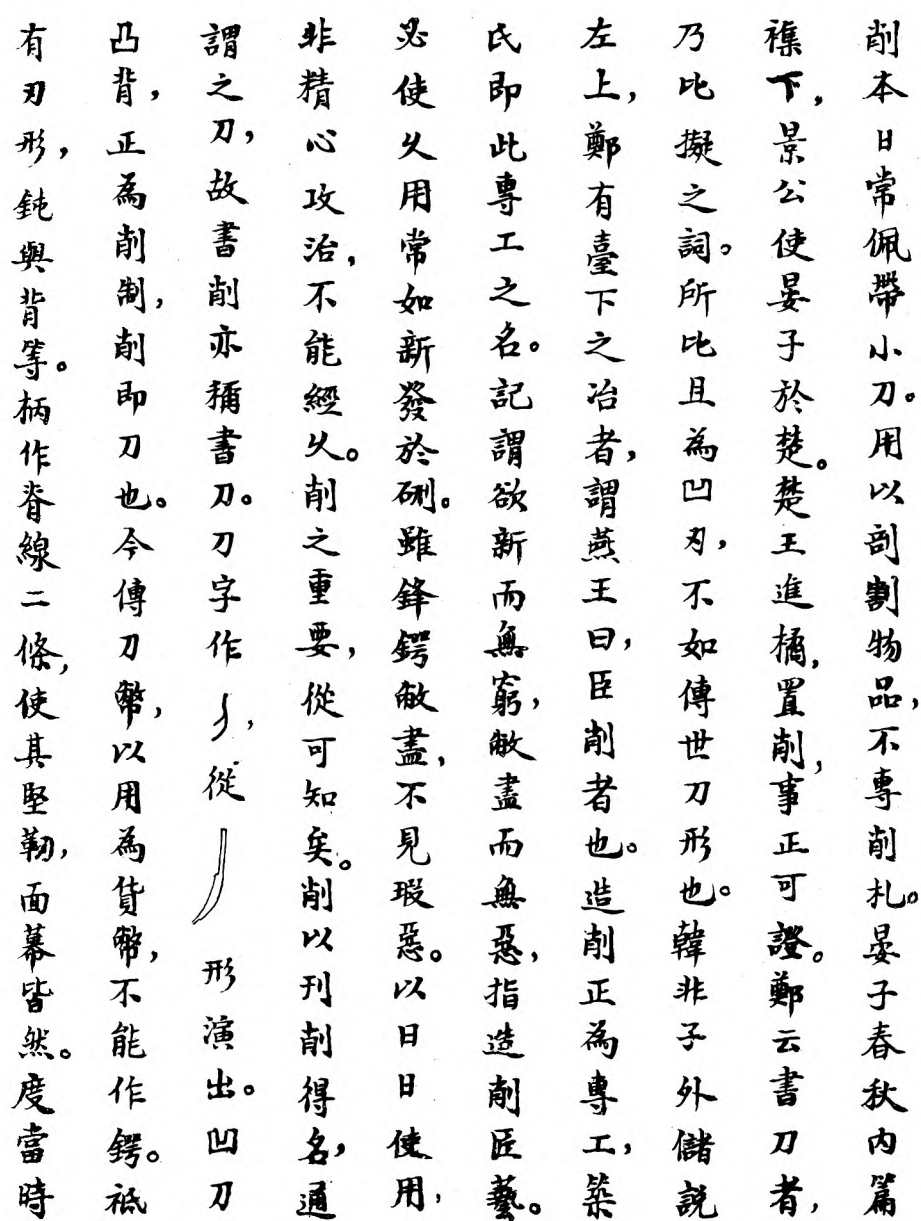 削本日常佩帶小刀。用以剖割物品，不專削札。晏子春秋内篇
襍下，景公使晏子於楚。楚王進橘，置削，事正可證。鄭云書刀者，
乃比擬之詞。所比且為凹刃，不如傳世刀形也。韓非子外儲説
左上，鄭有臺下之冶者，謂燕王曰，臣削者也。造削正為專工，築
氏即此專工之名。記謂欲新而無窮，敝盡而無惡，指造削匠藝。
必使久用常如新發於硎。雖鋒鍔敝盡，不見瑕惡。以日日使用，
非精心攻治，不能經久。削之重要，從可知矣。削以刊削得名，通
謂之刀，故書削亦稱書刀。刀字作，從形演出。凹刀
凸背，正為削制，削即刀也。今傳刀幣，以用為貨幣，不能作鍔。祗
有刃形，鈍與背等。柄作脊線二條，使其堅韌，面幕皆然。度當時